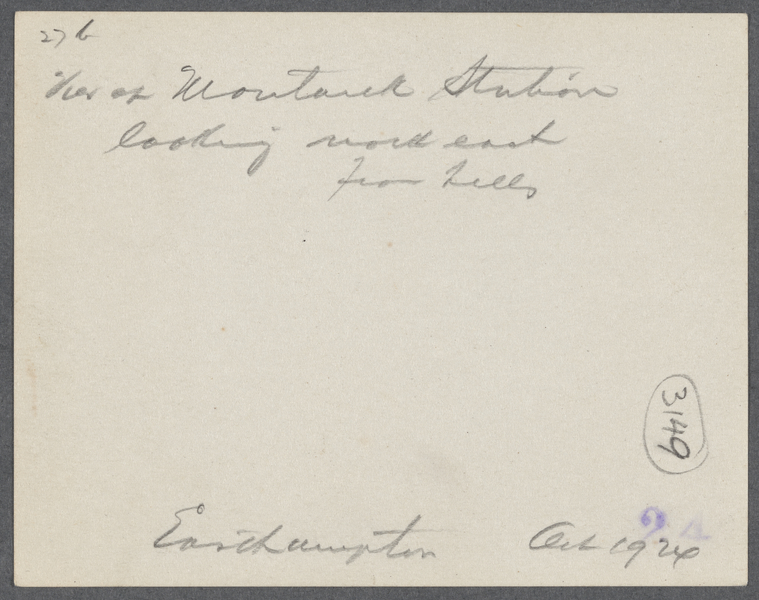 27 b
View of Montauk Station
looking north east
From hills
3149
Easthampton Oct 1924
24